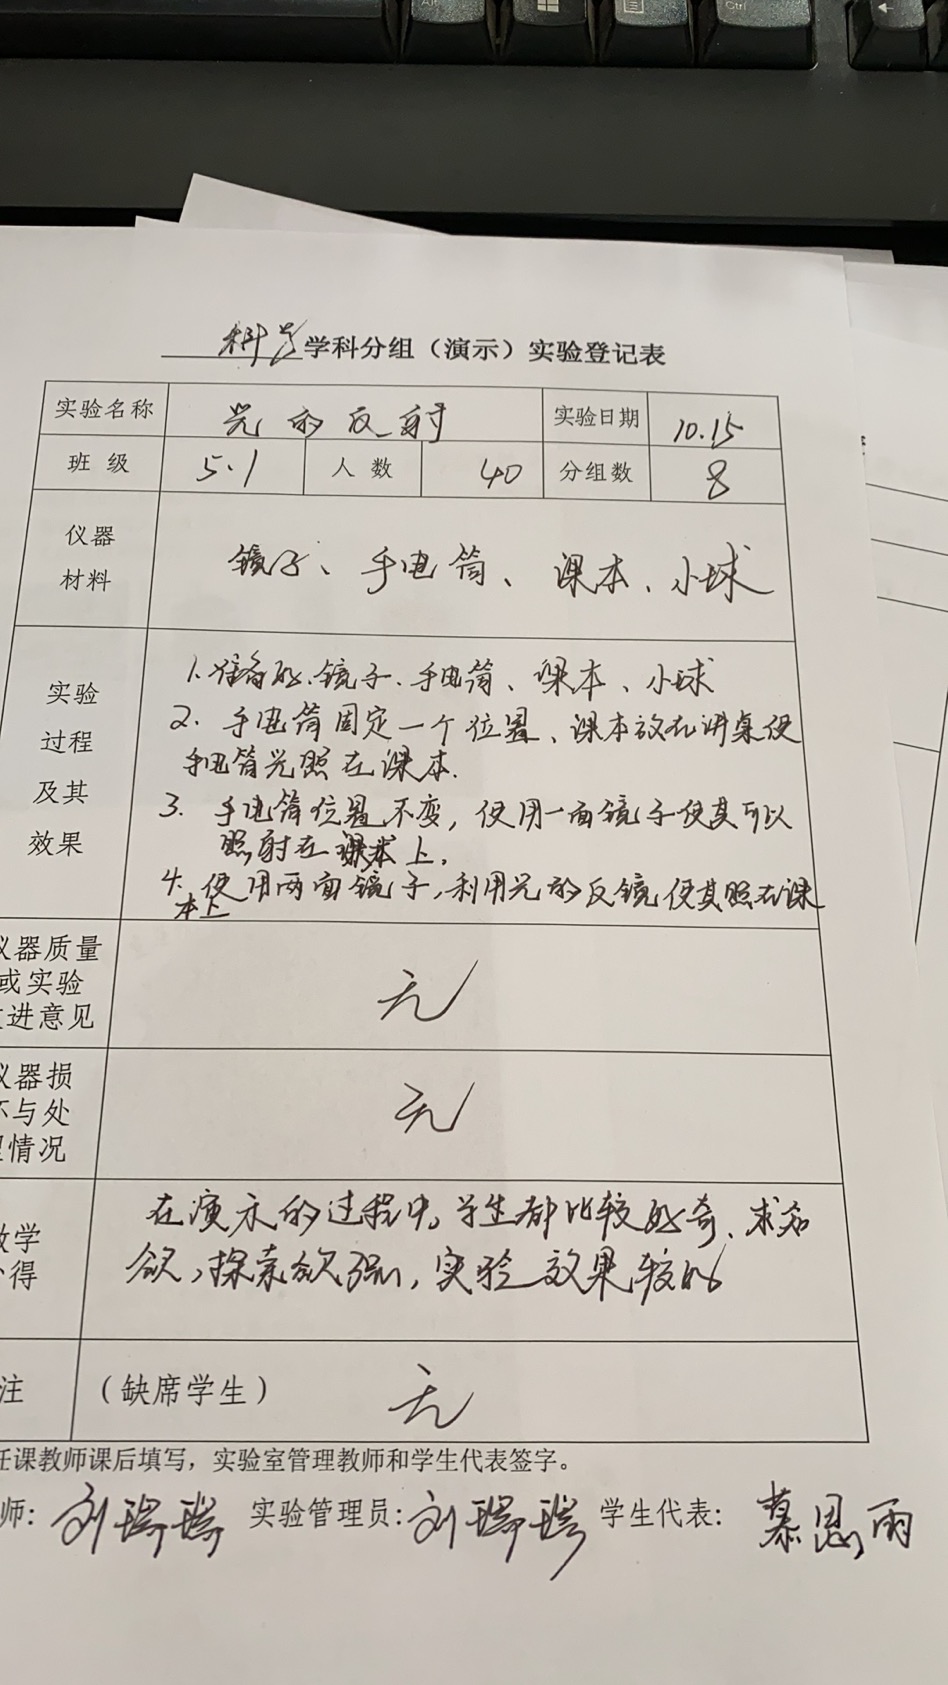 Alt
Ctrl
科学学科分组（演示）实验登记表
实验名称 光的反射 实验日期 10.15
班 级 5.1 人 数 40 分组数 8
仪器
材料
镜子、手电筒、课本、小球
实验
过程
及其
效果
1.准备好.镜子.手电筒、课本、小球
2. 手电筒固定一个位置、课本放在讲桌使
手电筒光照在课本.
3. 手电筒位置不变，使用一面镜子使其可以
照射在课本上.
4. 使用两面镜子，利用光的反镜使其照在课
本上
仪器质量
或实验
改进意见
无
仪器损
坏与处
理情况
无
教学
心得
在演示的过程中，学生都比较好奇、求知
欲，探索欲强，实验效果较好
注 （缺席学生） 无
任课教师课后填写，实验室管理教师和学生代表签字。
师: 刘瑞瑞 实验管理员: 刘瑞瑞 学生代表: 慕思雨